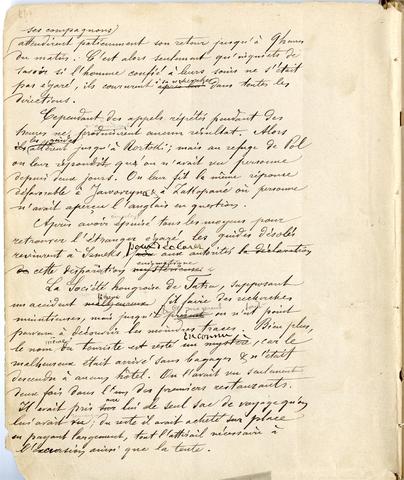 ses compagnons
attendirent patiemment son retour jusqu'à 9 heures
du matin. C'est alors seulement qu'inquiets de
savoir si l'homme confié à leurs soins ne s'était
pas égaré, ils coururent à sa recherche dans toutes les
directions.
Cependant des appels répétés pendant des
heures ne produisirent aucun résultat. Alors
les guides
ils allèrent jusqu'à ; mais au refuge de
on leur répondit qu'on n'avait vu personne
depuis deux jours. On leur fit la même réponse
défavorable à Javoryna & à Zakopane où personne
n'avait aperçu l'anglais en question.
Après avoir épuisé tous les moyens pour
retrouver l'étranger égaré les guides désolés
pour déclarer
revinrent à aux autorités la déclaration
énigmatique
de cette disparition mystérieuse.
La Société hongroise de Tatra, supposant
un accident malheureux fit faire des recherches
minutieuses, mais jusqu'à présent on n'est point
parvenu à découvrir les moindres traces. Bien plus,
même inconnu
le nom du touriste est resté un mystère, car le
malheureux était arrivé sans bagages & n'était
descendu à aucun hôtel. On l'avait vu seulement
deux fois dans l'un des premiers restaurants.
Il avait pris avec lui le seul sac de voyage qu'on
lui avait vu; du reste il avait acheté sur place
en payant largement, tout l'attirail nécessaire à
l'excursion ainsi que la tente.